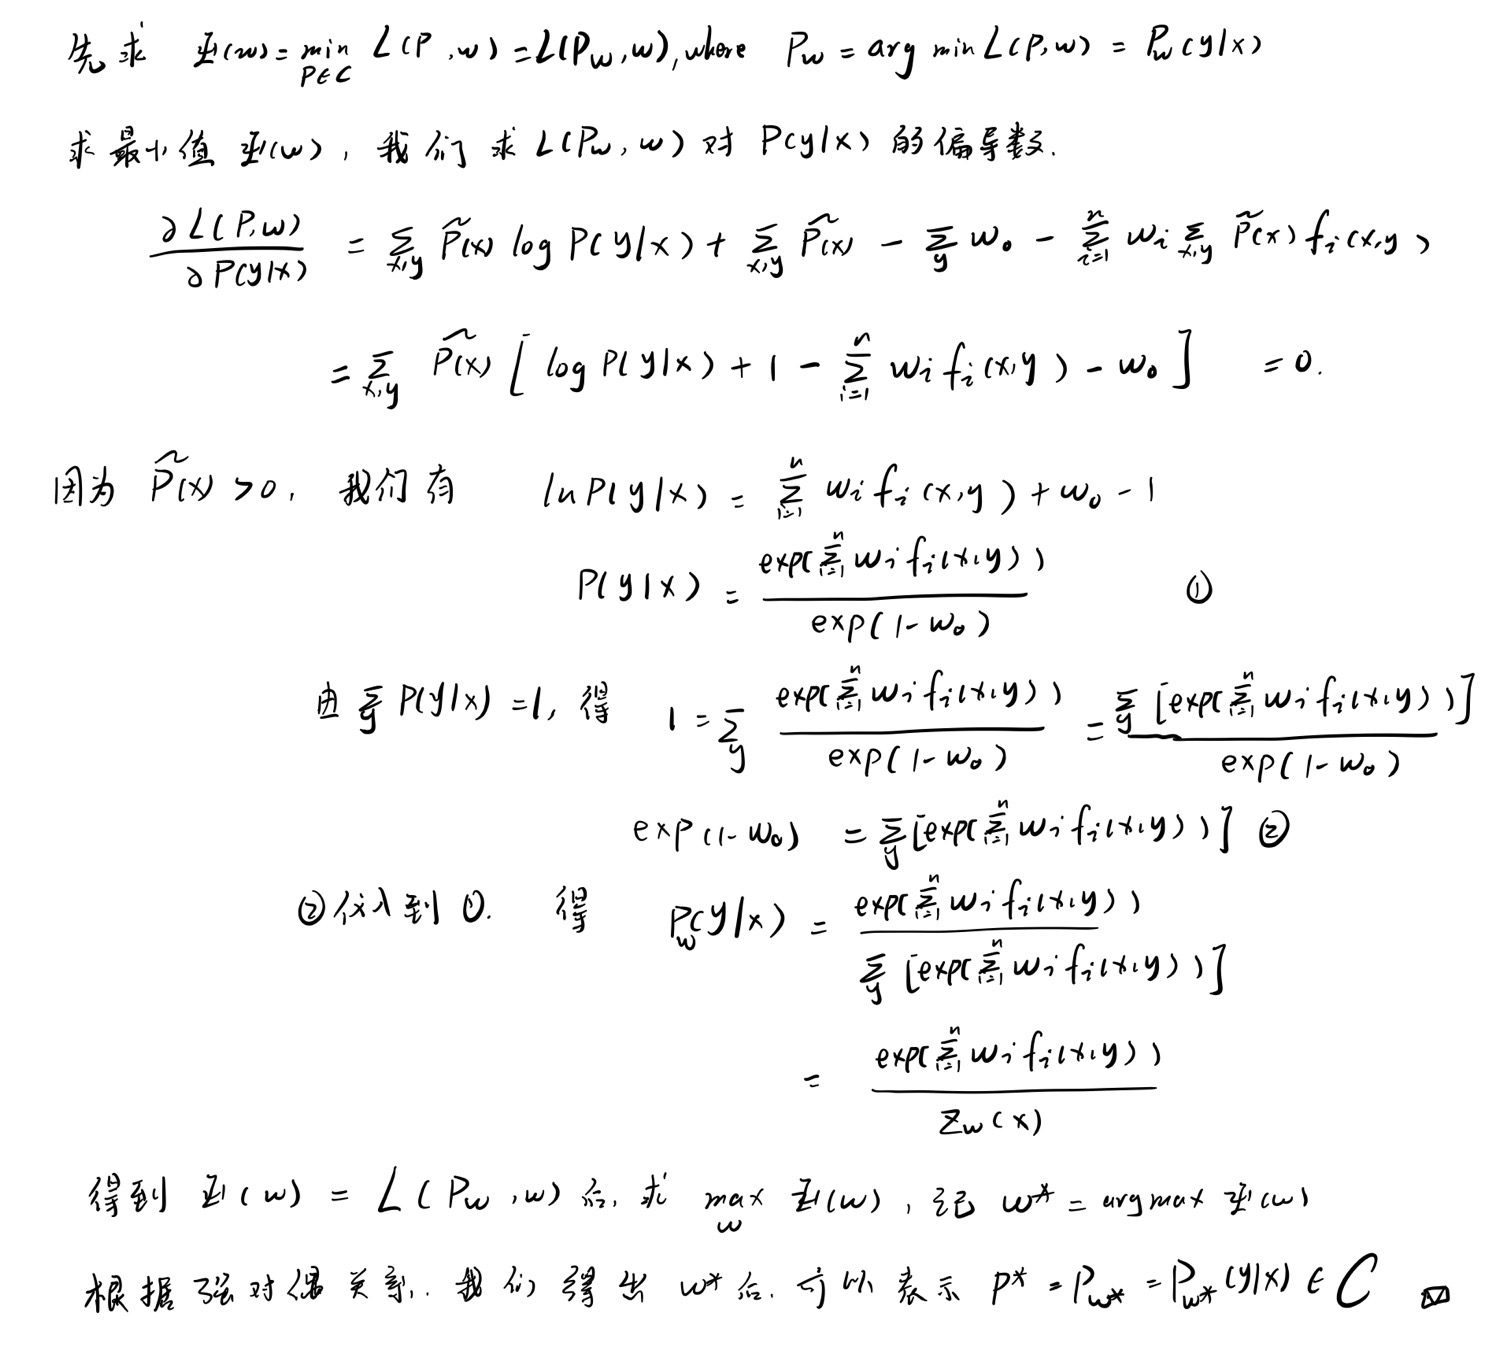 先求 Ψ(w) = min_{P∈C} L(P, w) = L(P_w, w), where P_w = arg min L(P, w) = P_w(y|x)
求最小值 Ψ(w), 我们求 L(P_w, w) 对 P(y|x) 的偏导数.
∂L(P,w)/∂P(y|x) = Σ_{x,y} P̃(x) log P(y|x) + Σ_{x,y} P̃(x) - Σ_y w_0 - Σ_{i=1}^n w_i Σ_{x,y} P̃(x) f_i(x,y)
= Σ_{x,y} P̃(x) [ log P(y|x) + 1 - Σ_{i=1}^n w_i f_i(x,y) - w_0 ] = 0.
因为 P̃(x) > 0, 我们有 ln P(y|x) = Σ_{i=1}^n w_i f_i(x,y) + w_0 - 1
P(y|x) = exp(Σ_{i=1}^n w_i f_i(x,y)) / exp(1-w_0) ①
由 Σ_y P(y|x) = 1, 得 1 = Σ_y exp(Σ_{i=1}^n w_i f_i(x,y)) / exp(1-w_0) = Σ_y [exp(Σ_{i=1}^n w_i f_i(x,y))] / exp(1-w_0)
exp(1-w_0) = Σ_y [exp(Σ_{i=1}^n w_i f_i(x,y))] ②
②代入到①. 得 P_w(y|x) = exp(Σ_{i=1}^n w_i f_i(x,y)) / Σ_y [exp(Σ_{i=1}^n w_i f_i(x,y))]
= exp(Σ_{i=1}^n w_i f_i(x,y)) / Z_w(x)
得到 Ψ(w) = L(P_w, w) 后, 求 max_w Ψ(w), 记 w* = arg max Ψ(w)
根据强对偶关系, 我们得出 w* 后, 可以表示 P* = P_{w*} = P_{w*}(y|x) ∈ C